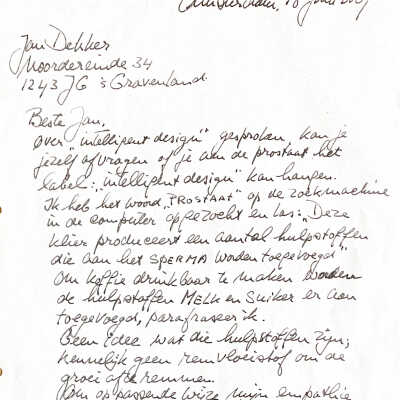 Jan Dekker
Noordereinde 34
1243 JG 's Graveland
Beste Jan,
Over "intelligent design" gesproken, kan je
jezelf afvragen of je aan de prostaat het
label: "intelligent design" kan hangen.
Ik heb het woord "PROSTAAT" op de zoekmachine
in de computer opgezocht en las: "Deze
klier produceert een aantal hulpstoffen
die aan het SPERMA worden toegevoegd".
Om koffie drinkbaar te maken worden
de hulpstoffen MELK en SUIKER er aan
toegevoegd, parafraseer ik.
Geen idee wat die hulpstoffen zijn;
kennelijk geen remvloeistof om de
groei af te remmen.
Om op passende wijze mijn empathie